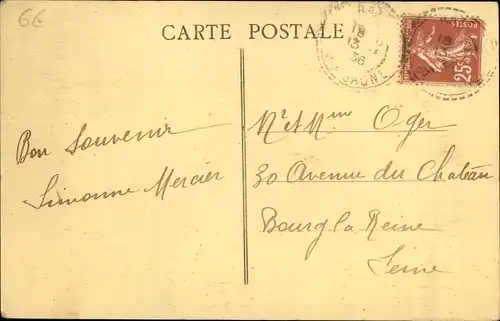 6E
CARTE POSTALE
POSTES
25c
Bon Souvenir
Simonne Mercier
Mr et Mme Oger
30 Avenue du Chateau
Bourg la Reine
Seine